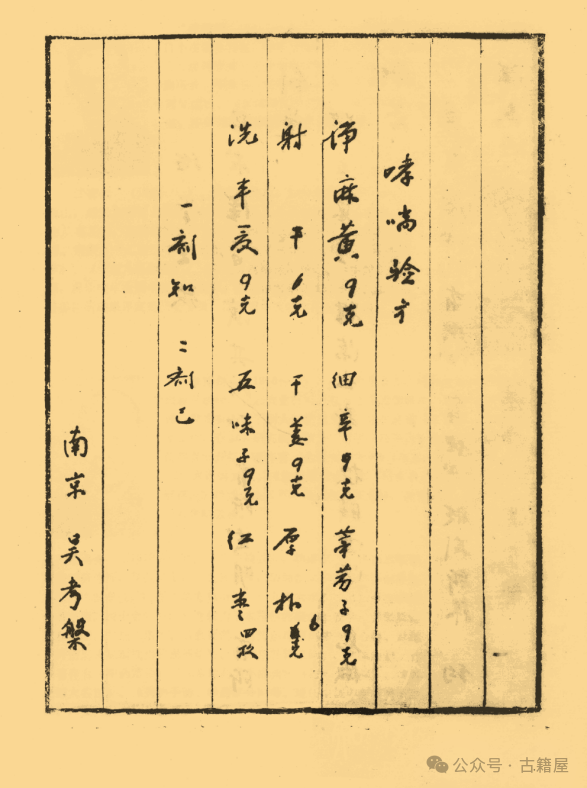 哮喘验方
净麻黄9克 细辛9克 葶苈子9克
射干6克 干姜9克 厚朴6克
洗半夏9克 五味子9克 红枣四枚
一剂知 二剂已
南京 吴考槃
公众号·古籍屋